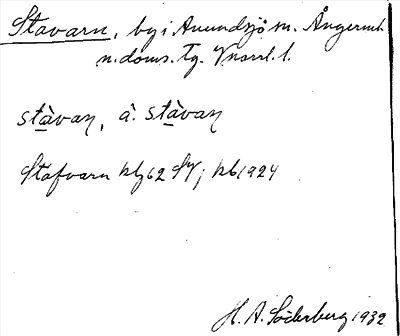 Stavarn, by i Anundsjö sn. Ångerml.
n. doms. Tg. Vnorrl. l.
stàvaṇ, å. stàvaṇ
Stafvarn kb 1924
H. A. Söderberg 1932